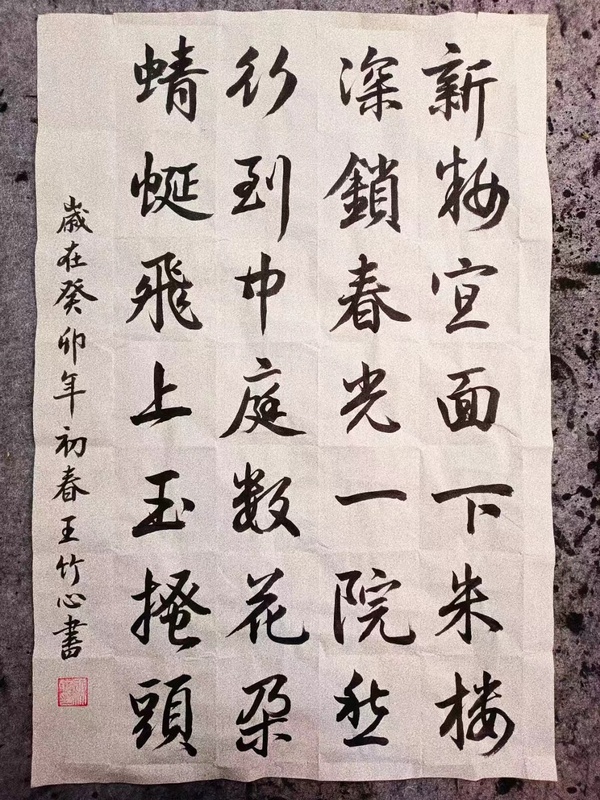 新粧宜面下朱楼
深鎖春光一院愁
行到中庭数花朵
蜻蜓飛上玉搔頭
歲在癸卯年初春王竹心書